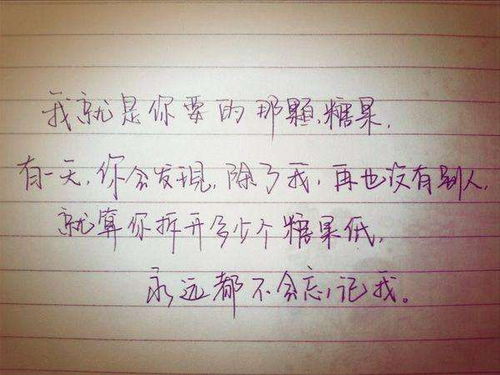 我就是你要的那顆,糖果,
有一天,你会发現,除了我,再也没有别人,
就算你拆开多少个糖果低,
永远都不会忘记我。